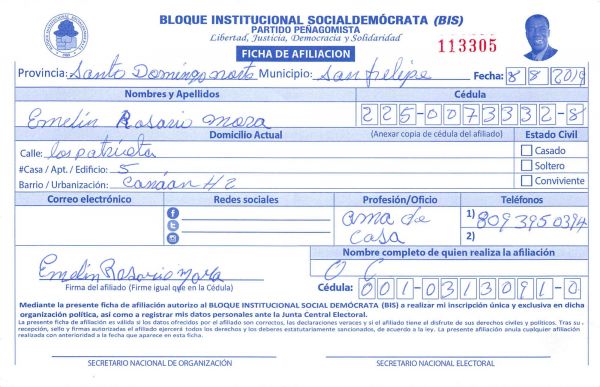 BLOQUE INSTITUCIONAL SOCIALDEMÓCRATA (BIS)
PARTIDO PEÑAGOMISTA
Libertad, Justicia, Democracia y Solidaridad
FICHA DE AFILIACION
113305
Provincia: Santo Domingo norte Municipio: San felipe Fecha: 8 8 2019
Nombres y Apellidos Cédula
Emelin Rosario mora 225-0073332-8
Domicilio Actual (Anexar copia de cédula del afiliado) Estado Civil
Calle: los patriota Casado
#Casa / Apt. / Edificio: 5 Soltero
Barrio / Urbanización: Canáan H2 Conviviente
Correo electrónico Redes sociales Profesión/Oficio Teléfonos
ama de casa 1) 809 395 0394
2)
Nombre completo de quien realiza la afiliación
Emelin Rosario mora O C
Firma del afiliado (Firme igual que en la Cédula) Cédula: 001-0313091-0
Mediante la presente ficha de afiliación autorizo al BLOQUE INSTITUCIONAL SOCIAL DEMÓCRATA (BIS) a realizar mi inscripción única y exclusiva en dicha
organización política, así como a registrar mis datos personales ante la Junta Central Electoral.
La presente ficha de afiliación es válida si los datos ofrecidos por el afiliado son correctos, las declaraciones veraces y si el afiliado tiene el disfrute de sus derechos civiles y políticos. Tras su
recepción, sello y firmas autorizadas el afiliado ejercerá todos los derechos y los deberes estatutariamente sancionados, de acuerdo a la ley. La presente afiliación anula cualquier afiliación
realizada con anterioridad a la fecha que aparece en esta ficha.
SECRETARIO NACIONAL DE ORGANIZACIÓN SECRETARIO NACIONAL ELECTORAL